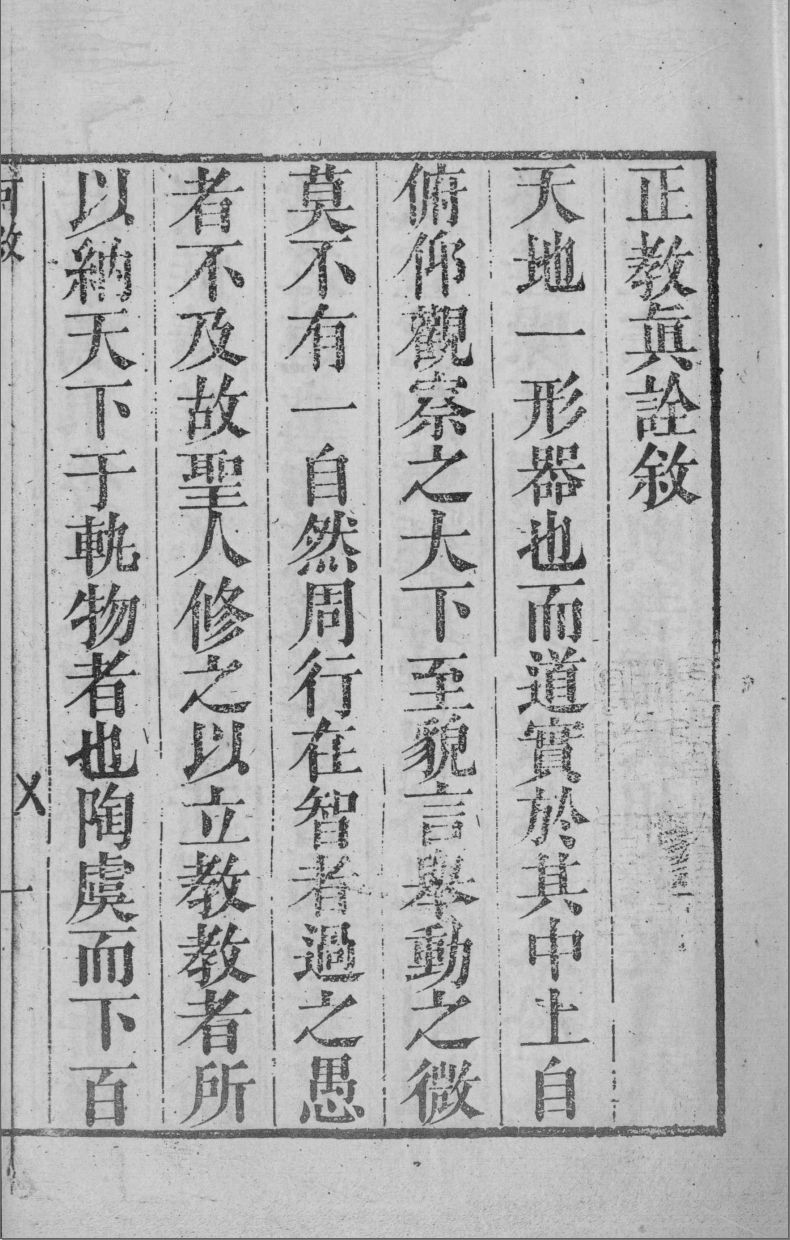 正教眞詮敘
天地一形器也而道實於其中上自
俯仰觀察之大下至貌言舉動之微
莫不有一自然周行在智者過之愚
者不及故聖人修之以立教教者所
以納天下于軌物者也陶虞而下百